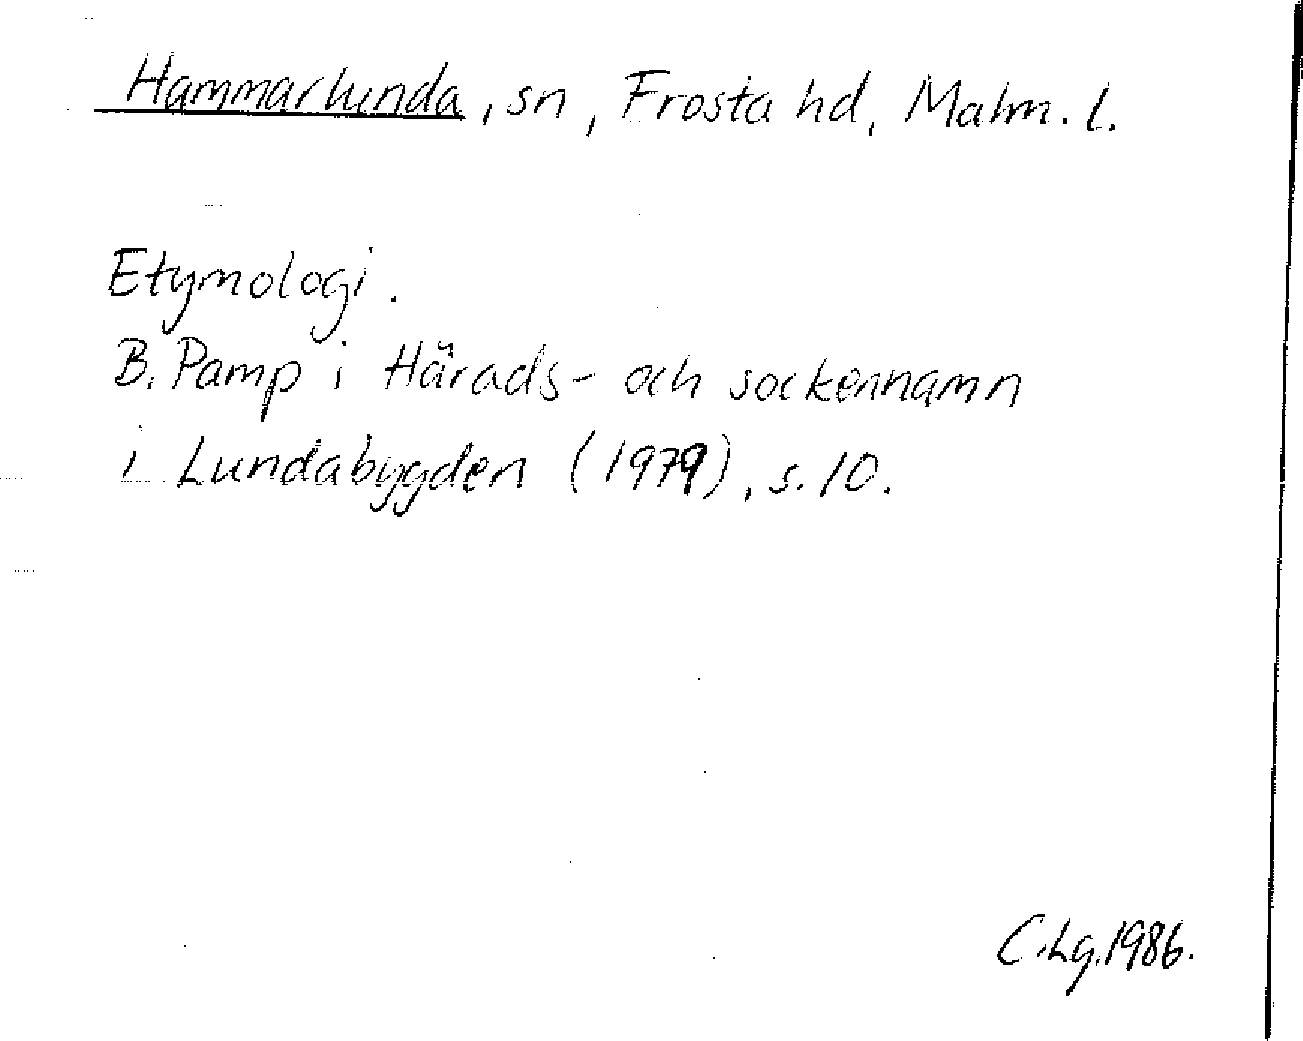 Hammarlunda, sn, Frosta hd, Malm. l.
Etymologi.
B. Pamp i Härads- och sockennamn
i Lundabygden (1979), s. 10.
C.Lg. 1986.